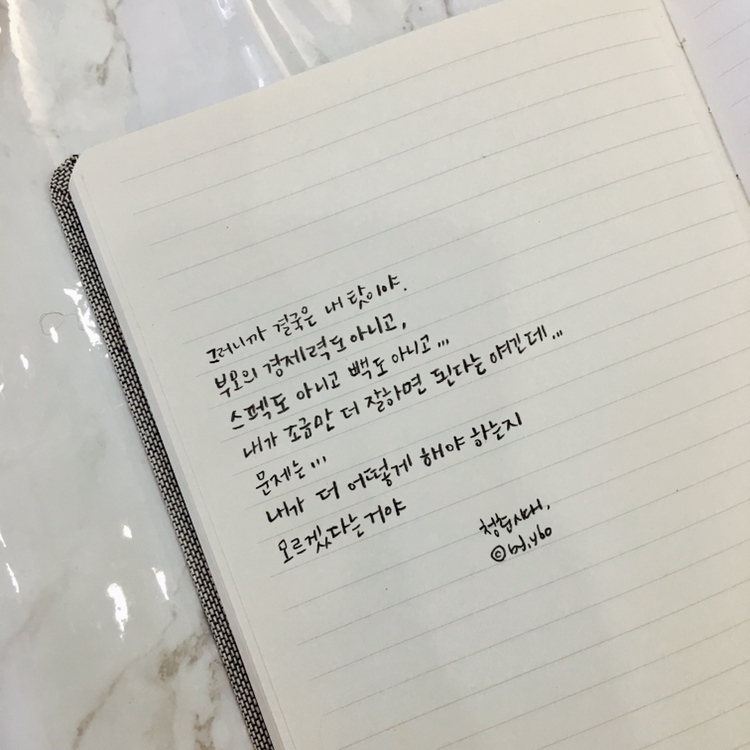 그러니까 결국은 내 탓이야.
부모의 경제력도 아니고,
스펙도 아니고 백도 아니고...
내가 조금만 더 잘하면 된다는 얘긴데...
문제는...
내가 더 어떻게 해야 하는지
모르겠다는거야
청춘시대,
©by.ybo